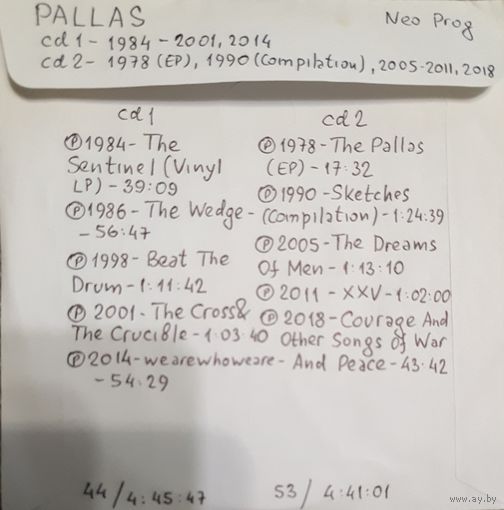 PALLAS Neo Prog
cd1 - 1984 - 2001, 2014
cd2 - 1978 (EP), 1990 (Compilation), 2005-2011, 2018
cd1
Ⓟ1984 - The
Sentinel (Vinyl
LP) - 39:09
Ⓟ1986 - The Wedge -
- 56:47
Ⓟ1998 - Beat The
Drum - 1:11:42
Ⓟ 2001 - The Cross&
The Crucible - 1:03:40
Ⓟ2014 - wearewhoweare -
- 54:29
44 / 4:45:47
cd2
Ⓟ1978 - The Pallas
(EP) - 17:32
Ⓟ1990 - Sketches
(Compilation) - 1:24:39
Ⓟ2005 - The Dreams
Of Men - 1:13:10
Ⓟ2011 - XXV - 1:02:00
Ⓟ2018 - Courage And
Other Songs Of War
And Peace - 43:42
53 / 4:41:01
www.ay.by